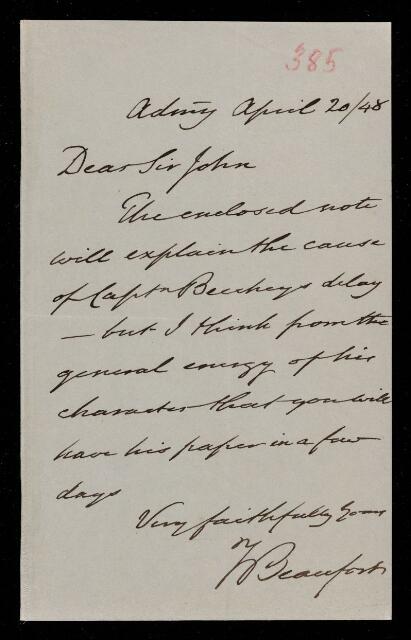 385
Admty April 20/48
Dear Sir John
The enclosed note
will explain the cause
of Captn Beechey's delay
— but I think from the
general energy of his
character that you will
have his paper in a few
days
Very faithfully yours
F Beaufort